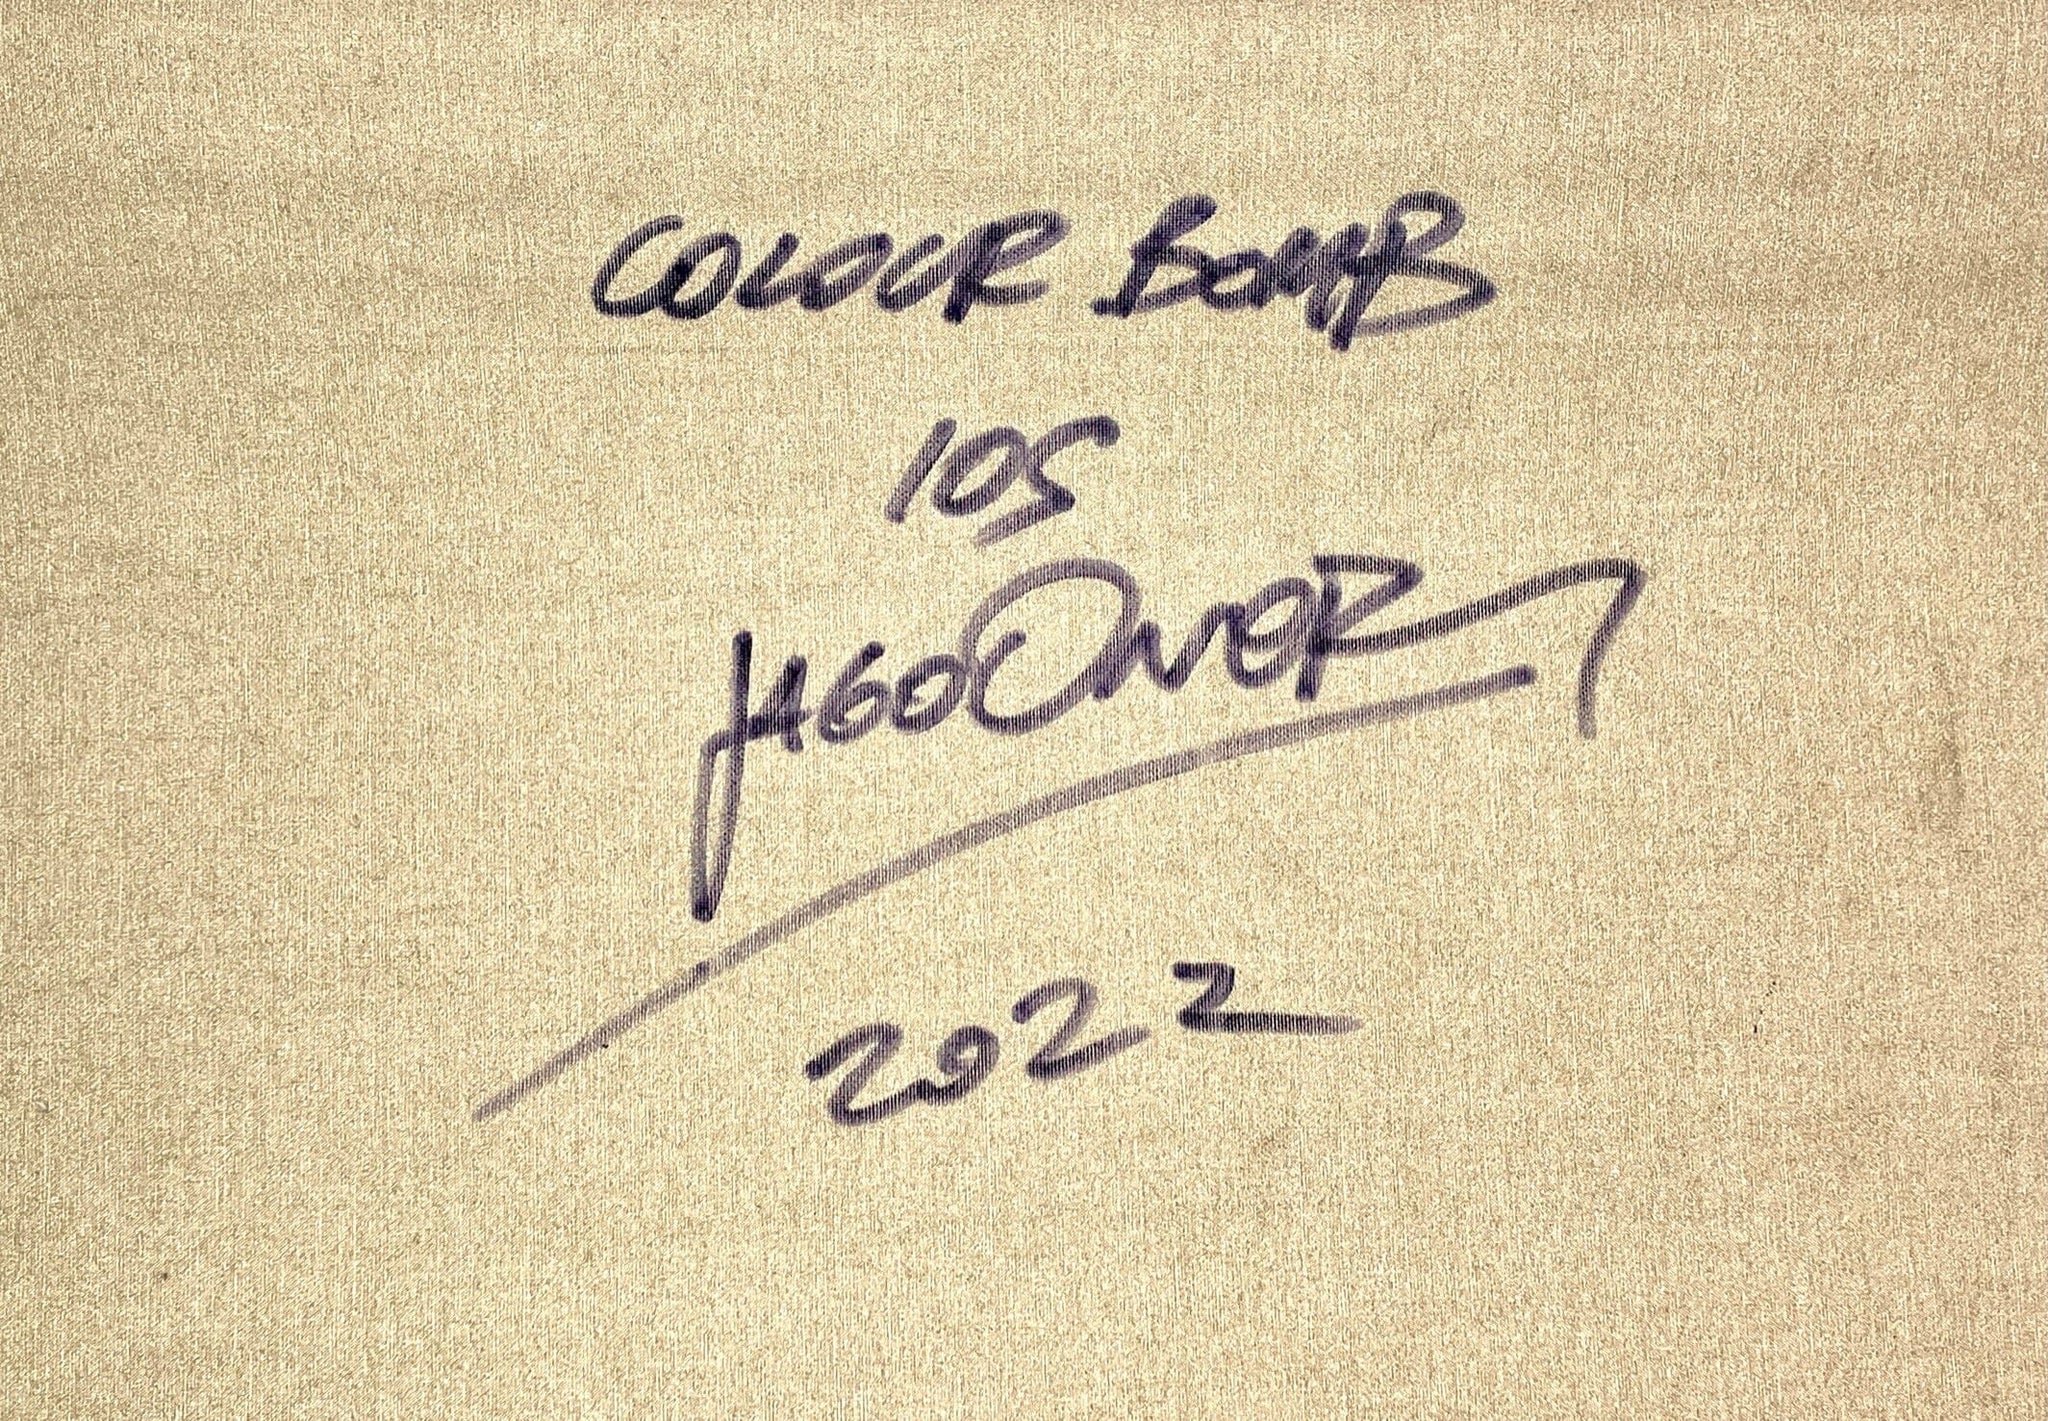 COLOUR BOMB
105
JAGOOnER
2022